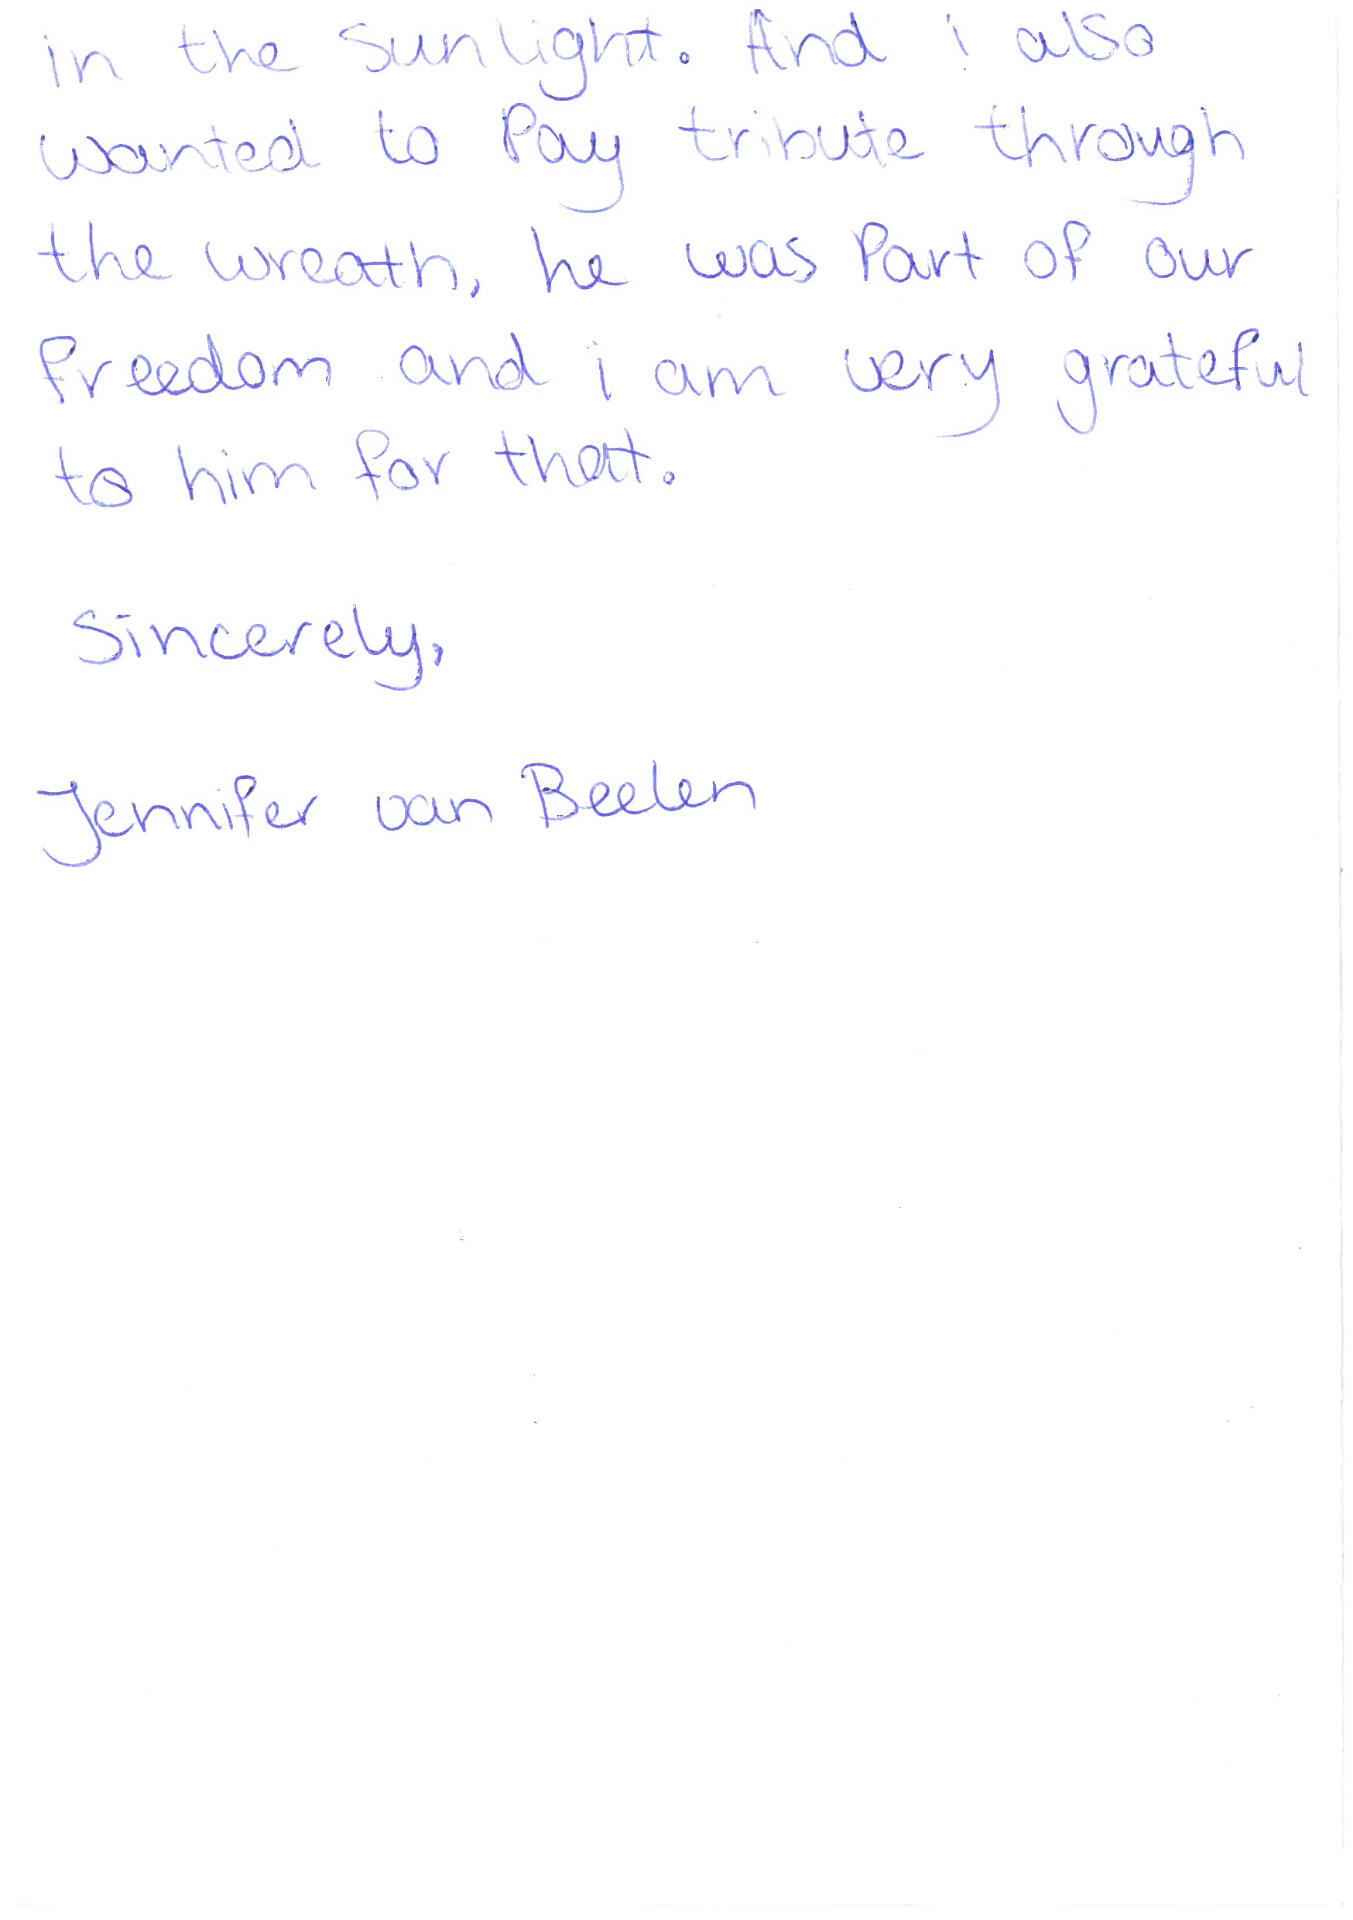 in the sunlight. And i also
wanted to Pay tribute through
the wreath, he was Part of our
freedom and i am very grateful
to him for that.
Sincerely,
Jennifer van Beelen